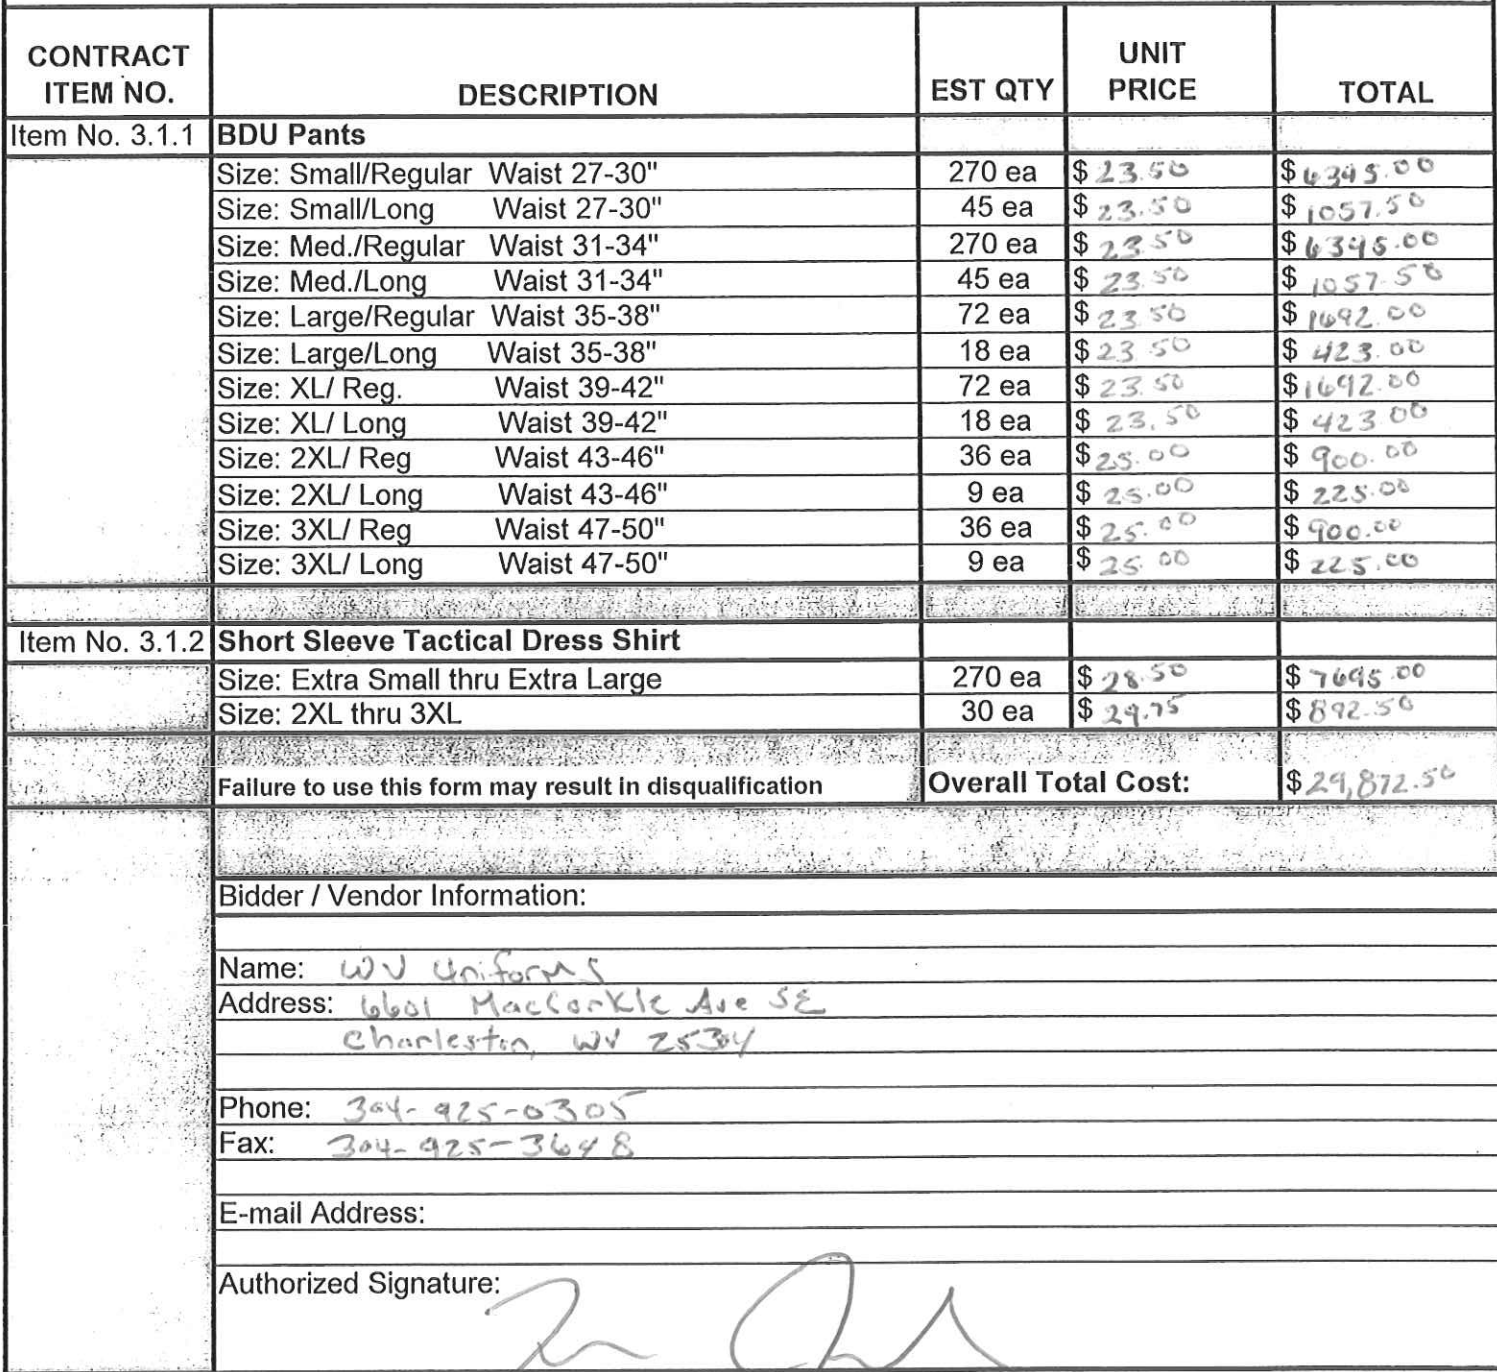 CONTRACT ITEM NO. DESCRIPTION EST QTY UNIT PRICE TOTAL
Item No. 3.1.1 BDU Pants
Size: Small/Regular Waist 27-30" 270 ea $ 23.50 $ 6345.00
Size: Small/Long Waist 27-30" 45 ea $ 23.50 $ 1057.50
Size: Med./Regular Waist 31-34" 270 ea $ 23.50 $ 6345.00
Size: Med./Long Waist 31-34" 45 ea $ 23.50 $ 1057.50
Size: Large/Regular Waist 35-38" 72 ea $ 23.50 $ 1692.00
Size: Large/Long Waist 35-38" 18 ea $ 23.50 $ 423.00
Size: XL/ Reg. Waist 39-42" 72 ea $ 23.50 $ 1692.00
Size: XL/ Long Waist 39-42" 18 ea $ 23.50 $ 423.00
Size: 2XL/ Reg Waist 43-46" 36 ea $ 25.00 $ 900.00
Size: 2XL/ Long Waist 43-46" 9 ea $ 25.00 $ 225.00
Size: 3XL/ Reg Waist 47-50" 36 ea $ 25.00 $ 900.00
Size: 3XL/ Long Waist 47-50" 9 ea $ 25.00 $ 225.00
Item No. 3.1.2 Short Sleeve Tactical Dress Shirt
Size: Extra Small thru Extra Large 270 ea $ 28.50 $ 7695.00
Size: 2XL thru 3XL 30 ea $ 29.75 $ 892.50
Failure to use this form may result in disqualification Overall Total Cost: $ 29,872.50
Bidder / Vendor Information:
Name: WV Uniforms
Address: 6601 MacCorkle Ave SE
Charleston, WV 25304
Phone: 304-925-0305
Fax: 304-925-3648
E-mail Address:
Authorized Signature: